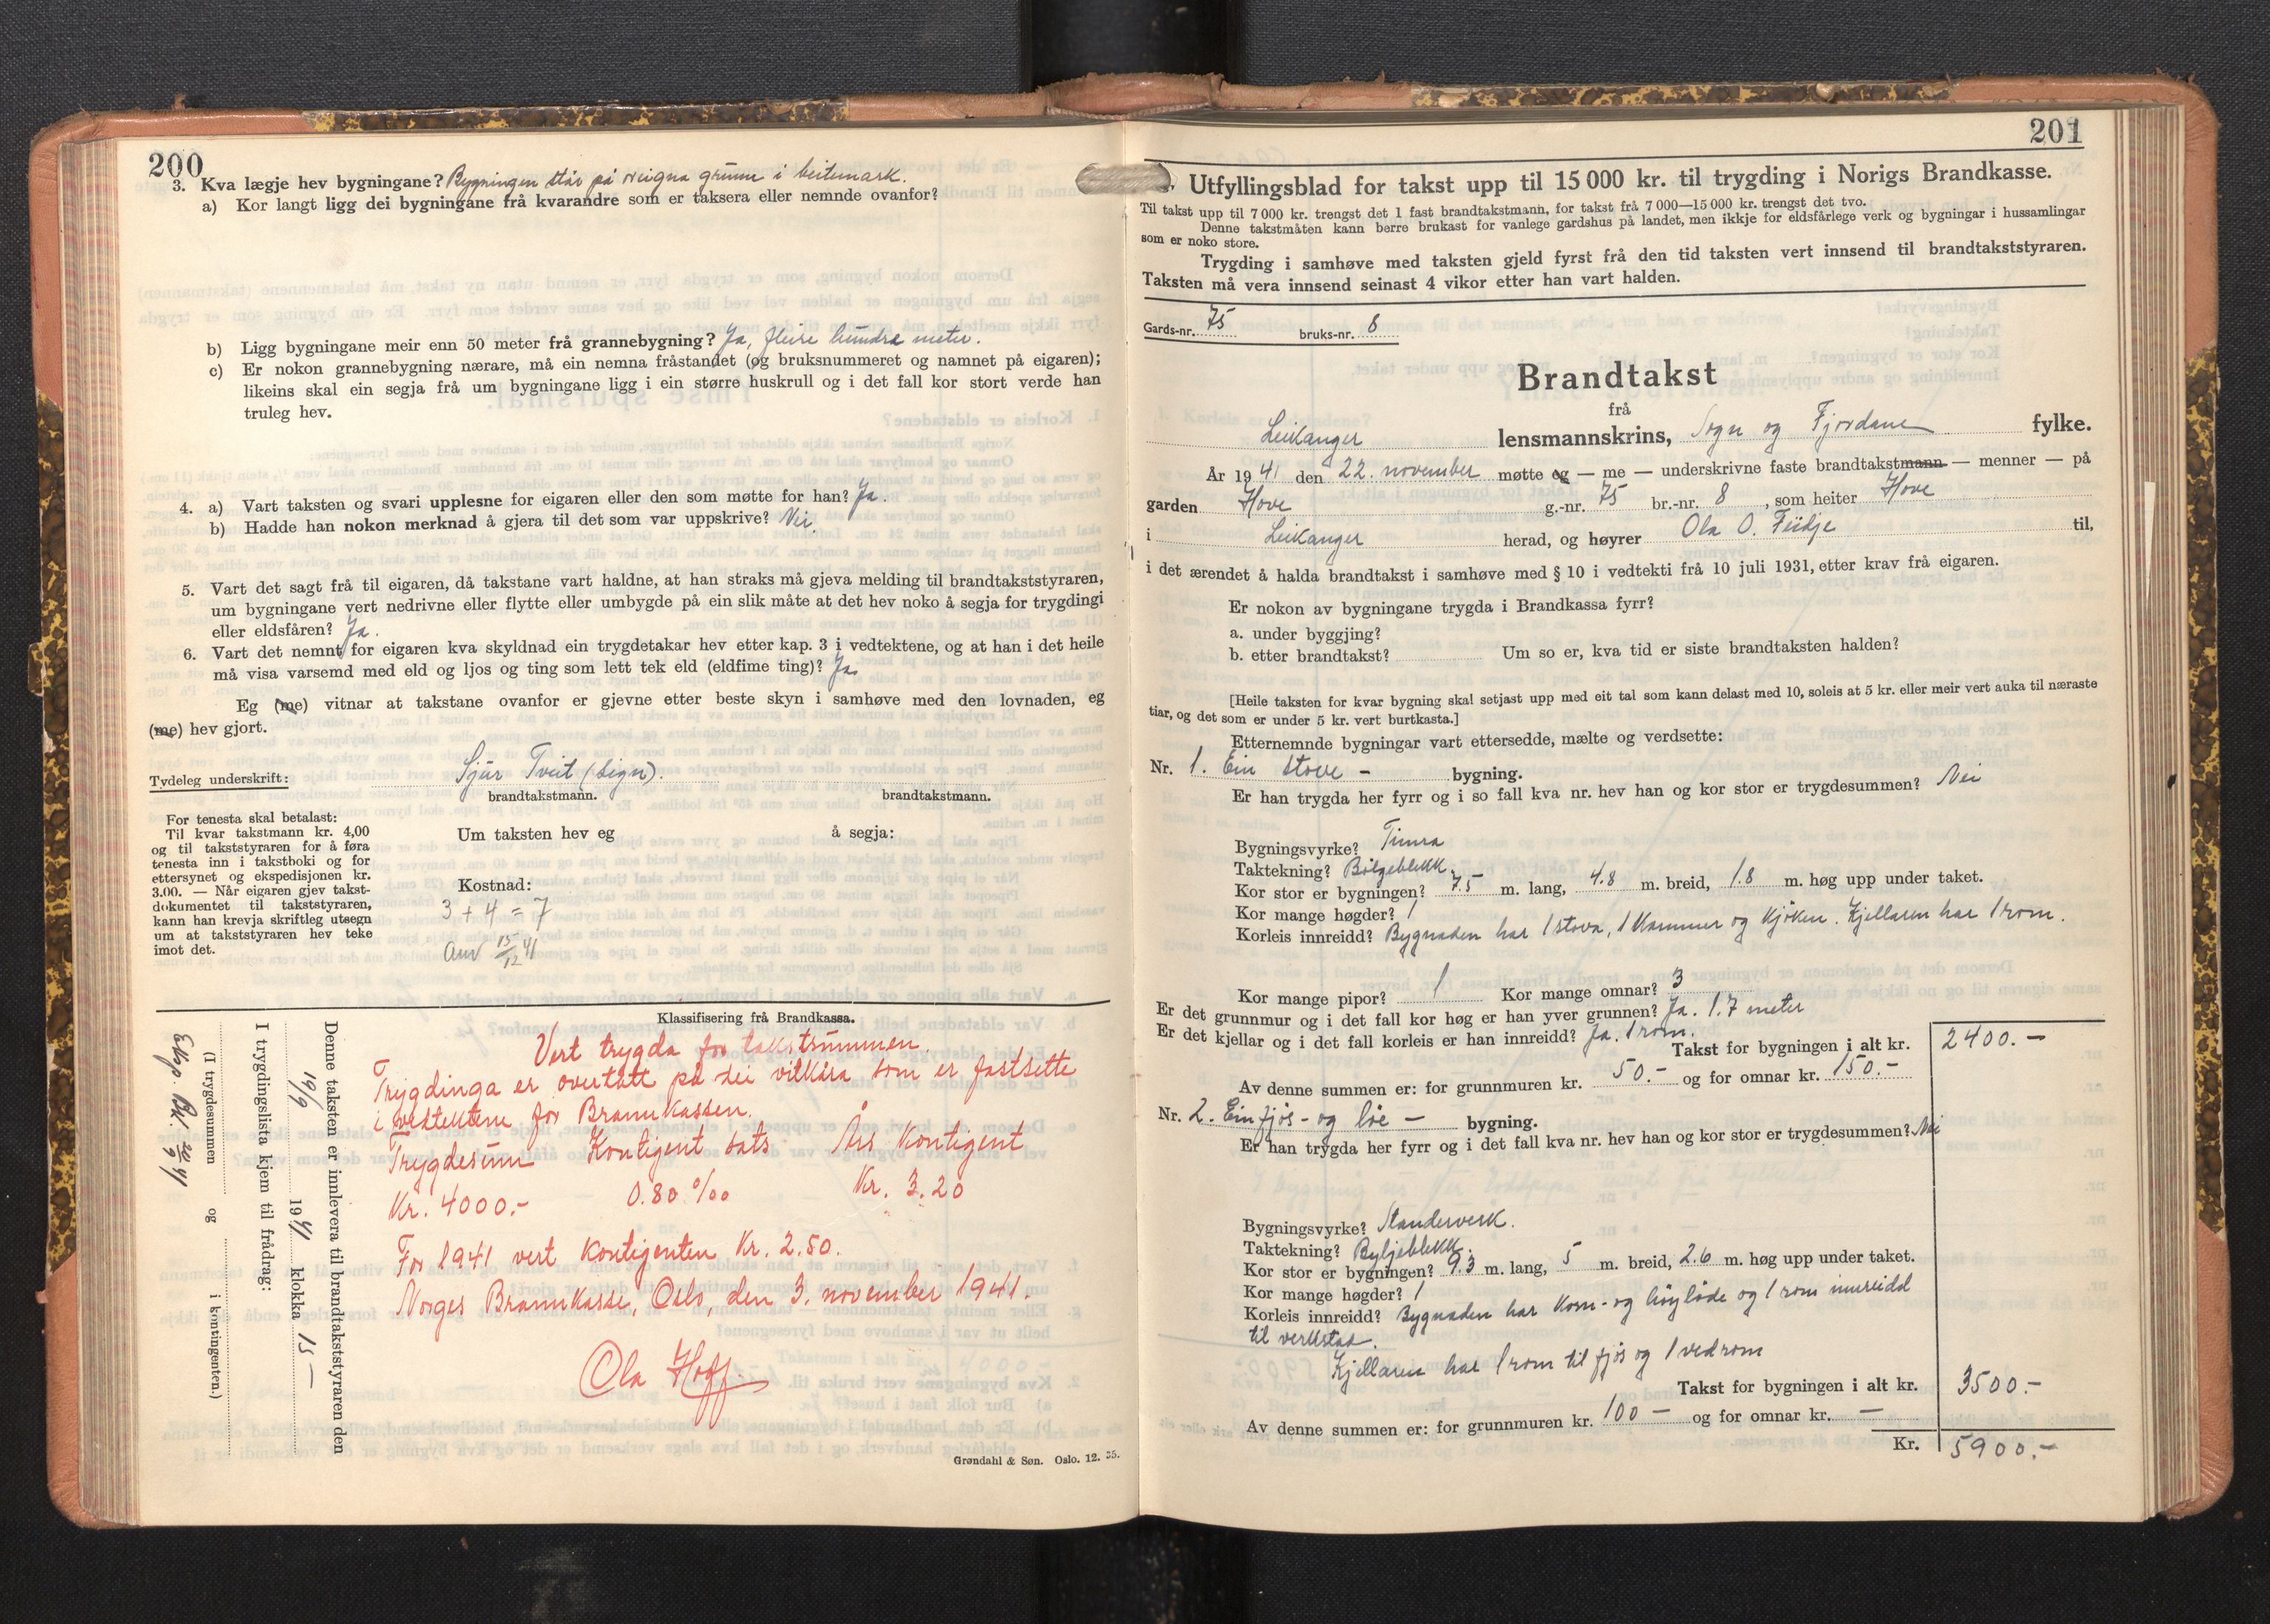 200
3. Kva lægje hev bygningane? Bygningen står på eigna grunn i beitemark.
a) Kor langt ligg dei bygningane frå kvarandre som er taksera eller nemnde ovanfor?
b) Ligg bygningane meir enn 50 meter frå grannebygning? Ja, fleire hundra meter.
c) Er nokon grannebygning nærare, må ein nemna fråstandet (og bruksnummeret og namnet på eigaren);
likeins skal ein segja frå um bygningane ligg i ein større huskrull og i det fall kor stort verde han
truleg hev.
4. a) Vart taksten og svari upplesne for eigaren eller den som møtte for han? Ja.
b) Hadde han nokon merknad å gjera til det som var uppskrive? Nei.
5. Vart det sagt frå til eigaren, då takstane vart haldne, at han straks må gjeva melding til brandtakststyraren,
um bygningane vert nedrivne eller flytte eller umbygde på ein slik måte at det hev noko å segja for trygdingi
eller eldsfåren? Ja.
6. Vart det nemnt for eigaren kva skyldnad ein trygdetakar hev etter kap. 3 i vedtektene, og at han i det heile
må visa varsemd med eld og ljos og ting som lett tek eld (eldfime ting)? Ja
Eg (me) vitnar at takstane ovanfor er gjevne etter beste skyn i samhøve med den lovnaden, eg
(me) hev gjort.
Tydeleg underskrift: Sjur Tveit (sign).
brandtakstmann. brandtakstmann.
For tenesta skal betalast:
Til kvar takstmann kr. 4,00
og til takststyraren for å føra
tenesta inn i takstboki og for
ettersynet og ekspedisjonen kr.
3.00. — Når eigaren gjev takst-
dokumentet til takststyraren,
kann han krevja skriftleg utsegn
um at takststyraren hev teke
imot det.
Um taksten hev eg å segja:
Kostnad:
3 + 4 = 7
Anv 15/12 41
Klassifisering frå Brandkassa.
Vert trygda for takstsummen.
Trygdinga er overtatt på dei vilkåra som er fastsette
i vedtektene for Brannkassen.
Trygdesum Kontigent sats Års Kontigent
Kr. 4000.- 0.80 ‰ Kr. 3.20
For 1941 vert kontigenten Kr. 2.50.
Norges Brannkasse, Oslo, den 3. november 1941.
Ola Hoff
Denne taksten er innlevera til brandtakststyraren den
19/9 1941 klokka 15 —
I trygdingslista kjem til frådrag:
(I trygdesummen og i kontingenten.)
Eksp. Bk.
Grøndahl & Søn. Oslo. 12. 35.
201
Utfyllingsblad for takst upp til 15 000 kr. til trygding i Norigs Brandkasse.
Til takst upp til 7 000 kr. trengst det 1 fast brandtakstmann, for takst frå 7 000—15 000 kr. trengst det tvo.
Denne takstmåten kann berre brukast for vanlege gardshus på landet, men ikkje for eldsfårlege verk og bygningar i hussamlingar
som er noko store.
Trygding i samhøve med taksten gjeld fyrst frå den tid taksten vert innsend til brandtakststyraren.
Taksten må vera innsend seinast 4 vikor etter han vart halden.
Gards-nr. 75 bruks-nr. 8
Brandtakst
frå
Leikanger lensmannskrins, Sogn og Fjordane fylke.
År 1941 den 22. november møtte eg — me — underskrivne faste brandtakstmann — menner — på
garden Hove g.-nr. 75 br.-nr. 8, som heiter Hove
i Leikanger herad, og høyrer Ola O. Feidje til,
i det ærendet å halda brandtakst i samhøve med § 10 i vedtekti frå 10 juli 1931, etter krav frå eigaren.
Er nokon av bygningane trygda i Brandkassa fyrr?
a. under byggjing?
b. etter brandtakst? Um so er, kva tid er siste brandtaksten halden?
[Heile taksten for kvar bygning skal setjast upp med eit tal som kann delast med 10, soleis at 5 kr. eller meir vert auka til næraste
tiar, og det som er under 5 kr. vert burtkasta.]
Etternemnde bygningar vart ettersedde, mælte og verdsette:
Nr. 1. Ein stove - bygning.
Er han trygda her fyrr og i so fall kva nr. hev han og kor stor er trygdesummen? Nei
Bygningsvyrke? Timra
Taktekning? Bølgeblekk.
Kor stor er bygningen? 7.5 m. lang, 4.8 m. breid, 1.8 m. høg upp under taket.
Kor mange høgder? 1
Korleis innreidd? Bygnaden har 1 stova, 1 kammer og kjøken. Kjellaren har 1 rom.
Kor mange pipor? 1 Kor mange omnar? 3
Er det grunnmur og i det fall kor høg er han yver grunnen? Ja. 1.7 meter
Er det kjellar og i det fall korleis er han innreidd? Ja. 1 rom.
Takst for bygningen i alt kr. 2400.-
Av denne summen er: for grunnmuren kr. 50.- og for omnar kr. 150.-
Nr. 2. Ein fjøs- og løe - bygning.
Er han trygda her fyrr og i det fall kva nr. hev han og kor stor er trygdesummen? Nei
Bygningsvyrke? Standerverk.
Taktekning? Bylgjeblekk.
Kor stor er bygningen? 9.3 m. lang, 5 m. breid, 2.6 m. høg upp under taket.
Kor mange høgder? 1
Korleis innreidd? Bygnaden har korn- og høyløde og 1 rom innreidd
til verkstad.
Kjellaren har 1 rom til fjøs og 1 vedrom
Takst for bygningen i alt kr. 3500.-
Av denne summen er: for grunnmuren kr. 100 - og for omnar kr. —
Kr. 5900.-